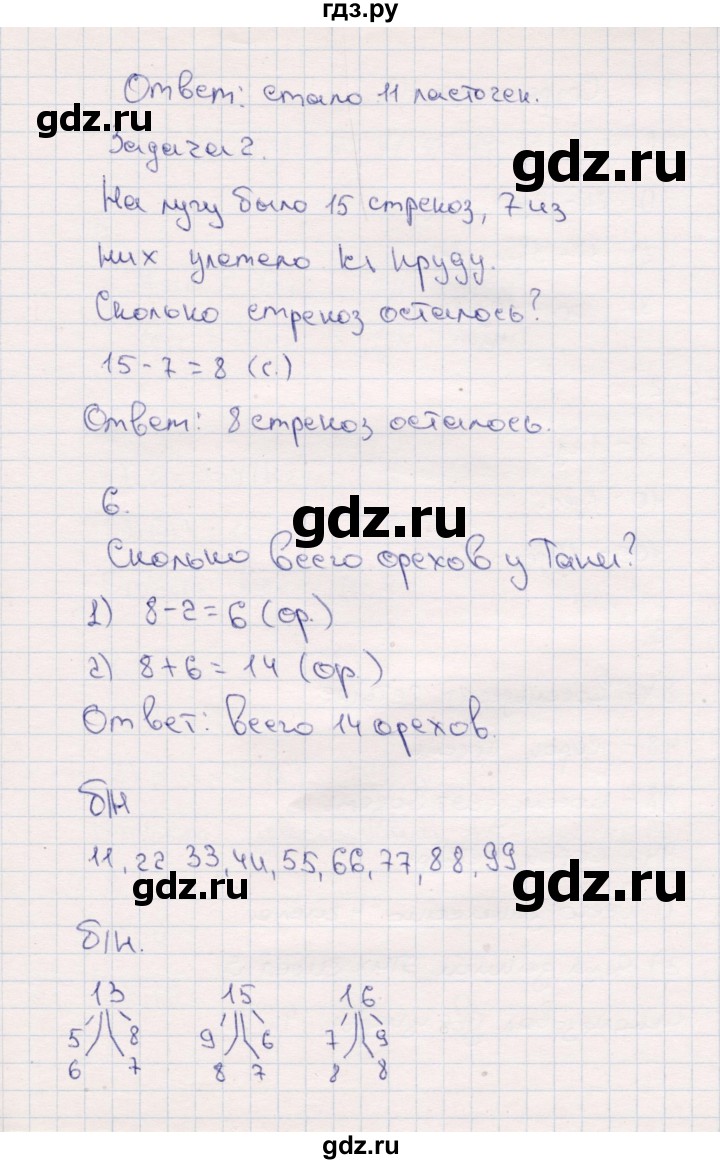 гдз.ру
Ответ: стало 11 ласточек.
gdz.ru
Задача 2.
gdz.ru
На лугу было 15 стрекоз, 7 из
них улетело к пруду.
Сколько стрекоз осталось?
15 - 7 = 8 (с.)
Ответ: 8 стрекоз осталось.
6.
gdz.ru
Сколько всего орехов у Тани?
1) 8 - 2 = 6 (ор.)
2) 8 + 6 = 14 (ор.)
Ответ: всего 14 орехов.
б/н
11, 22, 33, 44, 55, 66, 77, 88, 99
gdz.ru
gdz.ru
б/н.
13 15 16
5 8 9 6 7 9
6 7 8 7 8 8
gdz.ru